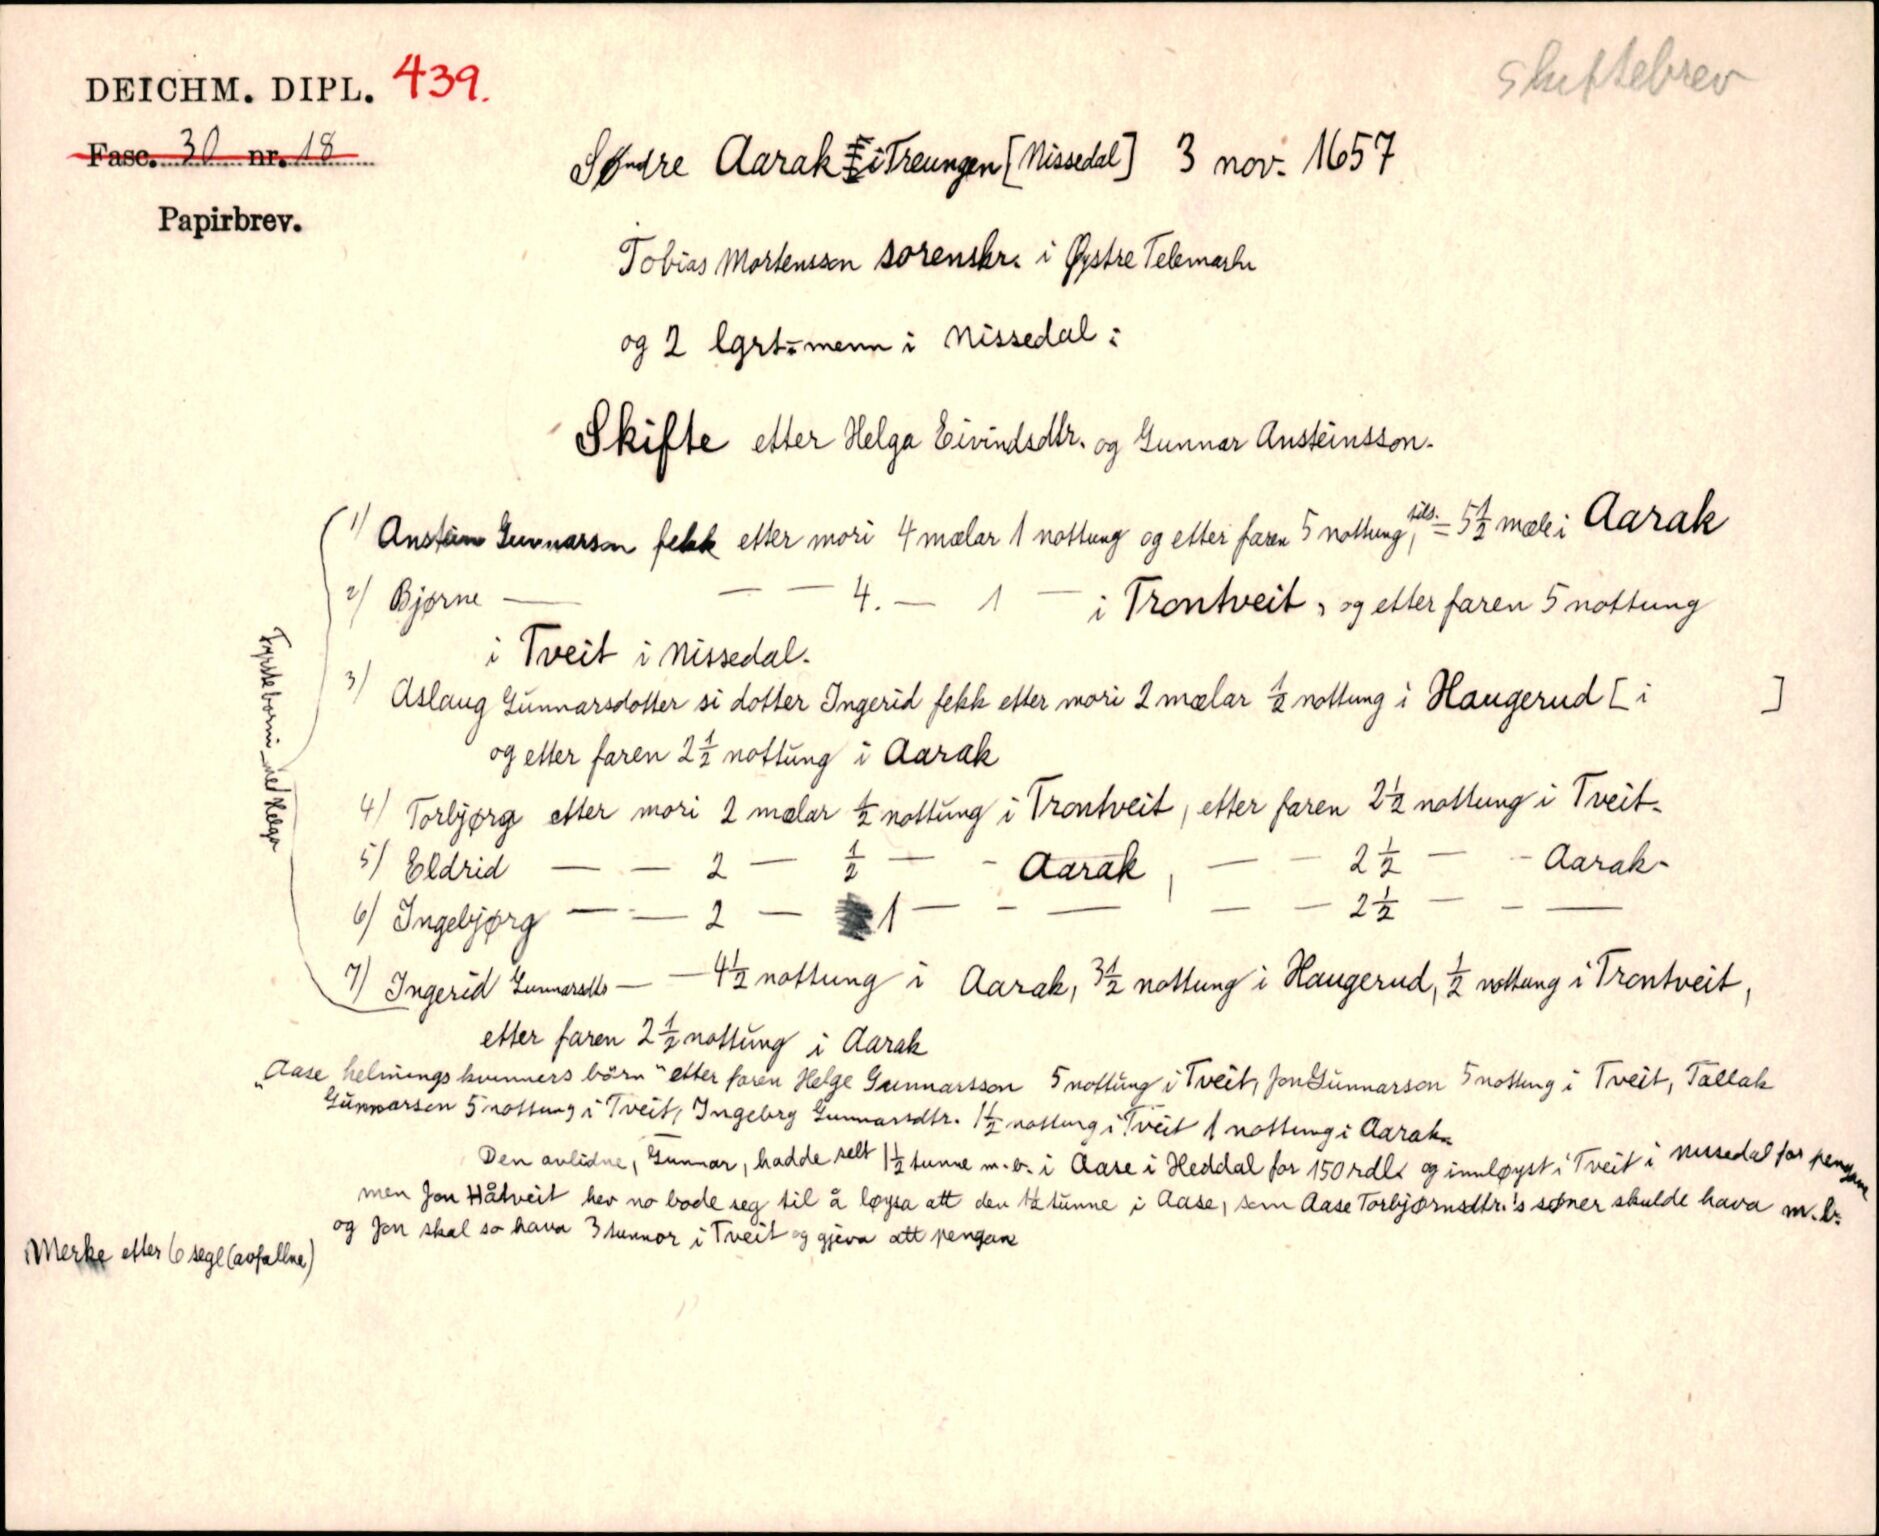 DEICHM. DIPL. 439.
skiftebrev
Fasc. 30 nr. 18
Papirbrev.
Søndre Aarak i Treungen [Nissedal] 3 nov. 1657
Tobias Mortensson sorenskr. i Øystre Telemark
og 2 lgrt.-menn i Nissedal:
Skifte etter Helga Eivindsdtr. og Gunnar Ansteinsson.
1) Anstein Gunnarson fekk etter mori 4 mælar 1 nottung og etter faren 5 nottung, tils. = 5 1/2 mæle i Aarak
2) Bjørne — — — 4. — 1 — i Trontveit, og etter faren 5 nottung
i Tveit i Nissedal.
3) Aslaug Gunnarsdotter si dotter Ingerid fekk etter mori 2 mælar 1/2 nottung i Haugerud [ i ]
og etter faren 2 1/2 nottung i Aarak
4) Torbjørg etter mori 2 mælar 1/2 nottung i Trontveit, etter faren 2 1/2 nottung i Tveit.
5) Eldrid — — 2 — 1/2 — - Aarak, — - 2 1/2 — - Aarak-
6) Ingebjørg — — 2 — 1 — - — — — 2 1/2 — - —
7) Ingerid Gunnarsdtr — — 4 1/2 nottung i Aarak, 3 1/2 nottung i Haugerud, 1/2 nottung i Trontveit,
etter faren 2 1/2 nottung i Aarak
Fyrste borni med Helga
"Aase helmings kvinners börn" etter faren Helge Gunnarsson 5 nottung i Tveit, Jon Gunnarson 5 nottung i Tveit, Tallak
Gunnarson 5 nottung i Tveit, Ingebrg Gunnarsdtr. 1 1/2 nottung i Tveit 1 nottung i Aarak.
Den avlidne, Gunnar, hadde selt 1 1/2 tunne m.b. i Aase i Heddal for 150 rdl. og innløyst i Tveit i Nissedal for pengane
men Jon Håtveit hev no bode seg til å løysa att den 1 1/2 tunne i Aase, som Aase Torbjørnsdtr.'s søner skulde hava m.b.
og Jon skal so hava 3 tunnor i Tveit og gjeva att pengane
Merke etter 6 segl (avfallne)